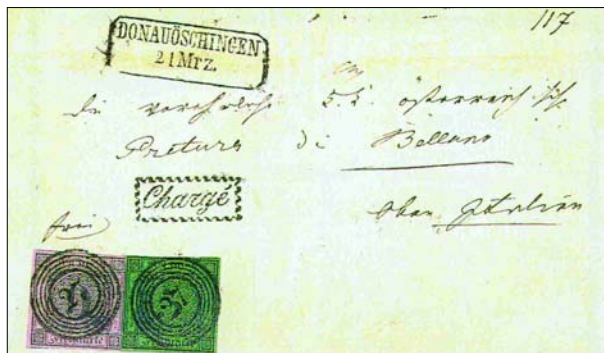 117
DONAUÖSCHINGEN
21 Mrz.
Die k. k. österreich
Pretura di Bellano
Chargé
Ober Italien
frei